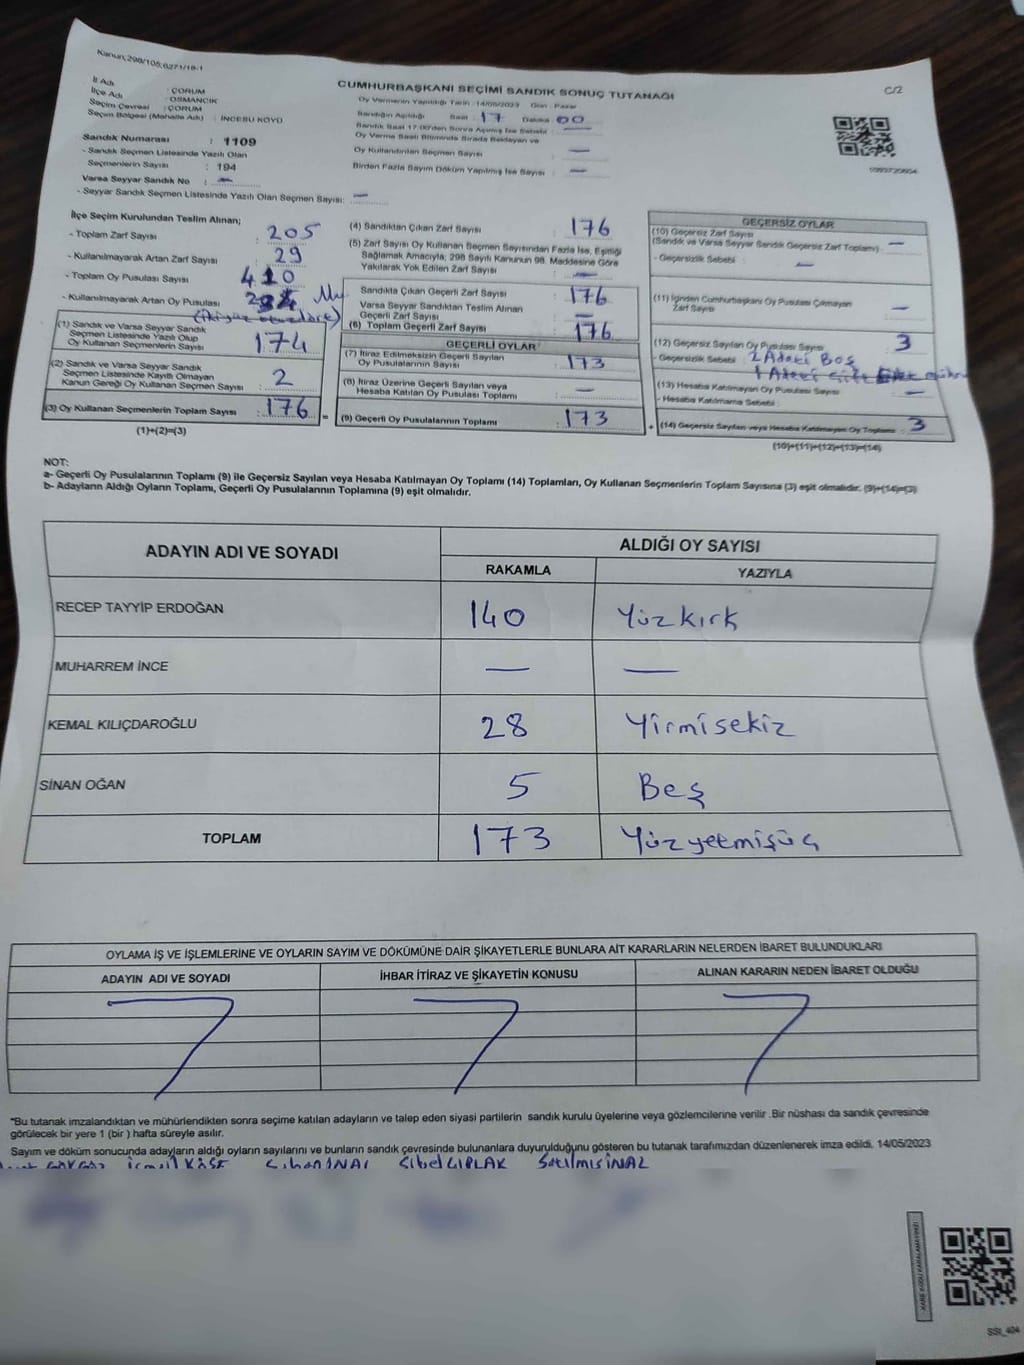 Kanun;298/105;6271/18-1
C/2
CUMHURBAŞKANI SEÇİMİ SANDIK SONUÇ TUTANAĞI
İl Adı : ÇORUM
İlçe Adı : OSMANCIK
Seçim Çevresi : ÇORUM
Seçim Bölgesi (Mahalle Adı) : İNCESU KÖYÜ
Sandık Numarası : 1109
- Sandık Seçmen Listesinde Yazılı Olan
Seçmenlerin Sayısı : 194
Varsa Seyyar Sandık No : —
- Seyyar Sandık Seçmen Listesinde Yazılı Olan Seçmen Sayısı: —
Oy Vermenin Yapıldığı Tarih : 14/05/2023 Gün : Pazar
Sandığın Açıldığı Saat : 17 Dakika 00
Sandık Saat 17:00'den Sonra Açılmış İse Sebebi : —
Oy Verme Saati Bitiminde Sırada Bekleyen ve
Oy Kullandırılan Seçmen Sayısı : —
Birden Fazla Sayım Döküm Yapılmış İse Sayısı : —
İlçe Seçim Kurulundan Teslim Alınan;
- Toplam Zarf Sayısı : 205
- Kullanılmayarak Artan Zarf Sayısı : 29
- Toplam Oy Pusulası Sayısı : 410
- Kullanılmayarak Artan Oy Pusulası
(1) Sandık ve Varsa Seyyar Sandık
Seçmen Listesinde Yazılı Olup
Oy Kullanan Seçmenlerin Sayısı : 174
(2) Sandık ve Varsa Seyyar Sandık
Seçmen Listesinde Kayıtlı Olmayan
Kanun Gereği Oy Kullanan Seçmen Sayısı : 2
(3) Oy Kullanan Seçmenlerin Toplam Sayısı : 176 =
(1)+(2)=(3)
(4) Sandıktan Çıkan Zarf Sayısı : 176
(5) Zarf Sayısı Oy Kullanan Seçmen Sayısından Fazla İse, Eşitliği
Sağlamak Amacıyla; 298 Sayılı Kanunun 98. Maddesine Göre
Yakılarak Yok Edilen Zarf Sayısı : —
Sandıkta Çıkan Geçerli Zarf Sayısı : 176
Varsa Seyyar Sandıktan Teslim Alınan
Geçerli Zarf Sayısı : —
(6) Toplam Geçerli Zarf Sayısı : 176
GEÇERLİ OYLAR
(7) İtiraz Edilmeksizin Geçerli Sayılan
Oy Pusulalarının Sayısı : 173
(8) İtiraz Üzerine Geçerli Sayılan veya
Hesaba Katılan Oy Pusulası Toplamı : —
(9) Geçerli Oy Pusulalarının Toplamı : 173 +
GEÇERSİZ OYLAR
(10) Geçersiz Zarf Sayısı
(Sandık ve Varsa Seyyar Sandık Geçersiz Zarf Toplamı) : —
- Geçersizlik Sebebi : —
(11) İçinden Cumhurbaşkanı Oy Pusulası Çıkmayan
Zarf Sayısı : —
(12) Geçersiz Sayılan Oy Pusulası Sayısı : 3
- Geçersizlik Sebebi : 2 Adeti Boş
1 Adeti Çift
(13) Hesaba Katılmayan Oy Pusulası Sayısı : —
- Hesaba Katılmama Sebebi :
(14) Geçersiz Sayılan veya Hesaba Katılmayan Oy Toplamı : 3
(10)+(11)+(12)+(13)=(14)
NOT:
a- Geçerli Oy Pusulalarının Toplamı (9) ile Geçersiz Sayılan veya Hesaba Katılmayan Oy Toplamı (14) Toplamları, Oy Kullanan Seçmenlerin Toplam Sayısına (3) eşit olmalıdır. (9)+(14)=(3)
b- Adayların Aldığı Oyların Toplamı, Geçerli Oy Pusulalarının Toplamına (9) eşit olmalıdır.
ADAYIN ADI VE SOYADI ALDIĞI OY SAYISI
RAKAMLA YAZIYLA
RECEP TAYYİP ERDOĞAN 140 Yüzkırk
MUHARREM İNCE — —
KEMAL KILIÇDAROĞLU 28 Yirmisekiz
SİNAN OĞAN 5 Beş
TOPLAM 173 Yüzyetmişüç
OYLAMA İŞ VE İŞLEMLERİNE VE OYLARIN SAYIM VE DÖKÜMÜNE DAİR ŞİKAYETLERLE BUNLARA AİT KARARLARIN NELERDEN İBARET BULUNDUKLARI
ADAYIN ADI VE SOYADI İHBAR İTİRAZ VE ŞİKAYETİN KONUSU ALINAN KARARIN NEDEN İBARET OLDUĞU
*Bu tutanak imzalandıktan ve mühürlendikten sonra seçime katılan adayların ve talep eden siyasi partilerin sandık kurulu üyelerine veya gözlemcilerine verilir .Bir nüshası da sandık çevresinde
görülecek bir yere 1 (bir ) hafta süreyle asılır.
Sayım ve döküm sonucunda adayların aldığı oyların sayılarını ve bunların sandık çevresinde bulunanlara duyurulduğunu gösteren bu tutanak tarafımızdan düzenlenerek imza edildi. 14/05/2023
İsmail KÖSE Sibel ÇIPLAK Satılmış İNAL